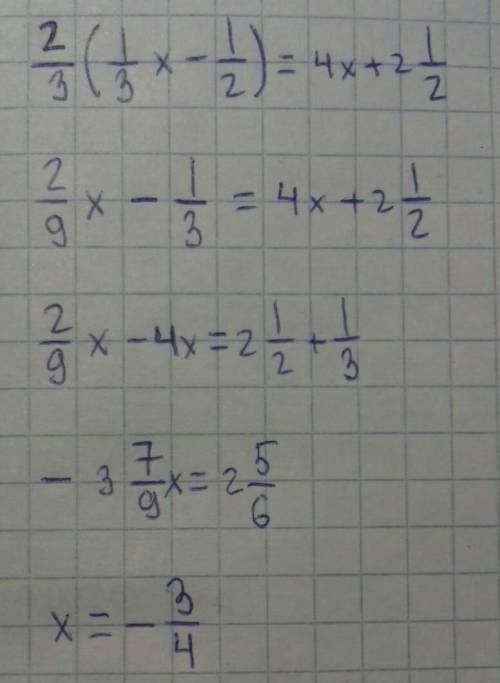 2/3(1/3x - 1/2) = 4x + 2 1/2
2/9x - 1/3 = 4x + 2 1/2
2/9x - 4x = 2 1/2 + 1/3
- 3 7/9x = 2 5/6
x = - 3/4